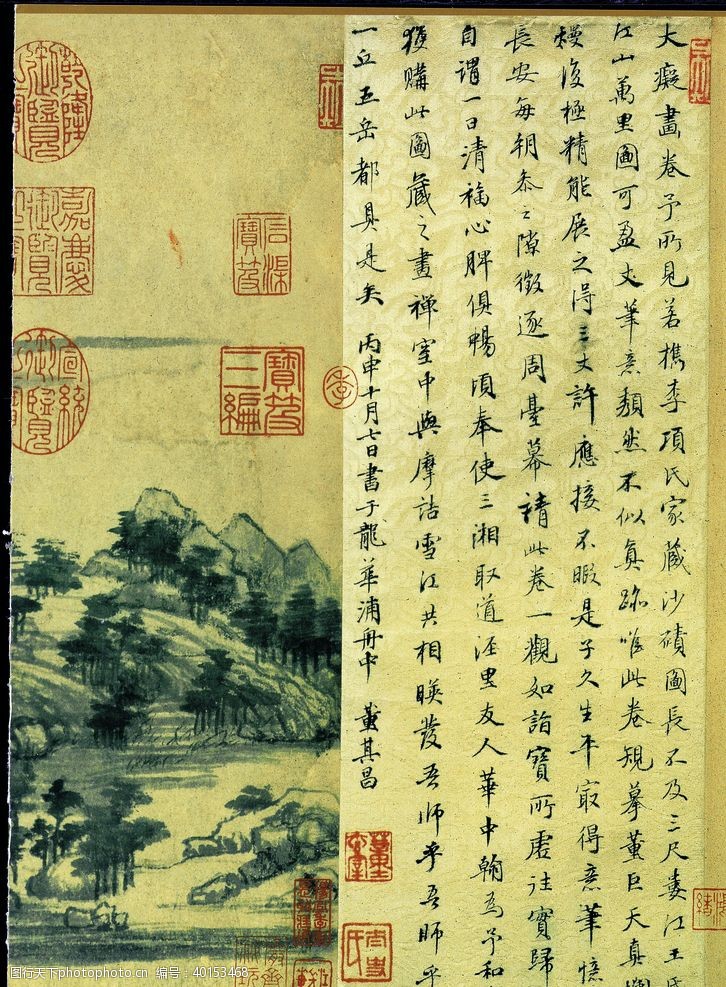 大癡畫卷予所見若檇李項氏家藏沙磧圖長不及三尺婁江王氏
江山萬里圖可盈丈筆意頹然不似真跡唯此卷規摹董巨天真爛
熳復極精能展之得三丈許應接不暇是子久生平最得意筆憶
長安每朝參之隙徵逐周臺幕請此卷一觀如詣寶所虛往實歸
自謂一日清福心脾俱暢頃奉使三湘取道涇里友人華中翰為予和
獲購此圖藏之畫禪室中與摩詰雪江共相暎發吾師乎吾師乎
一丘五岳都具是矣 丙申十月七日書于龍華浦舟中 董其昌
乾隆御覽
嘉慶御覽
宣統御覽
石渠寶笈
寶笈三編
图行天下photophoto.cn 编号:40153468